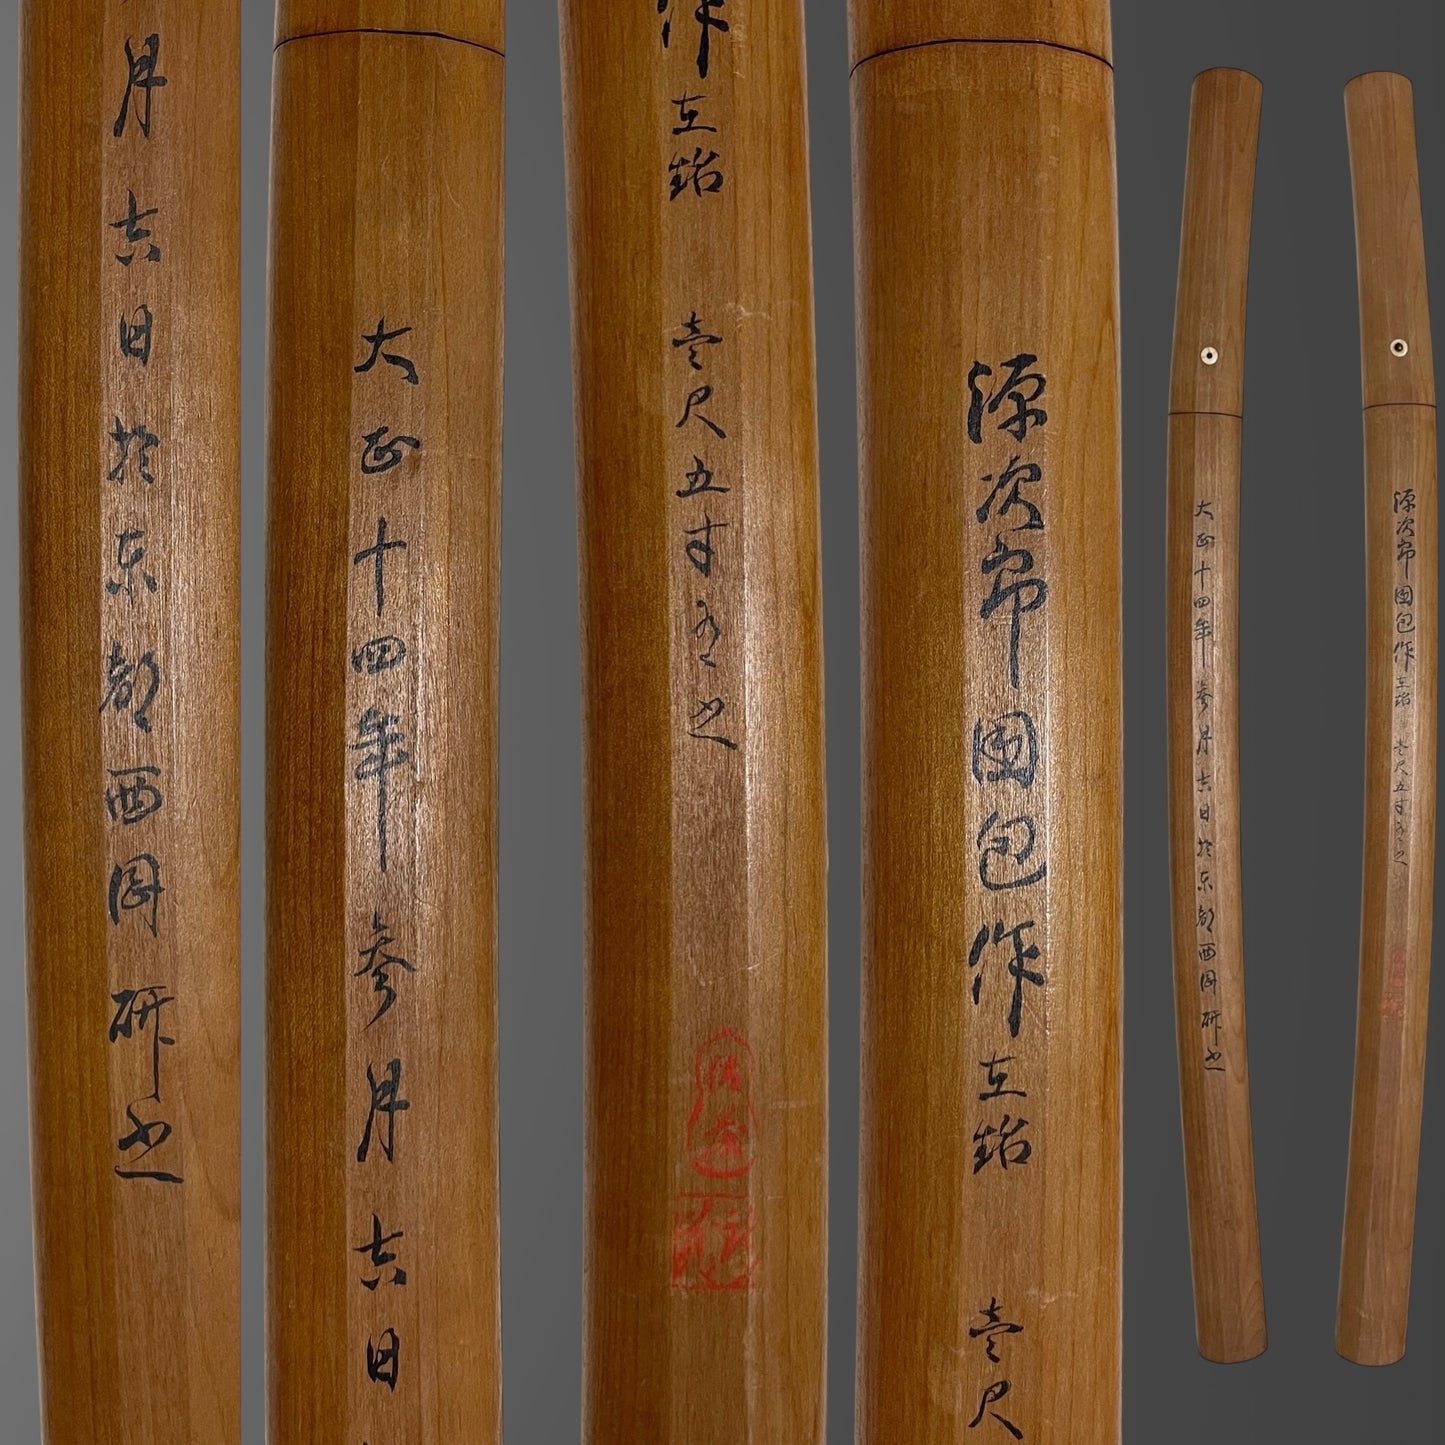 月吉日於東都西岡研之
大正十四年参月吉日
作 在銘 壱尺五寸有之
源次郎国包作 在銘 壱尺
大正十四年参月吉日於東都西岡研之
源次郎国包作 在銘 壱尺五寸有之